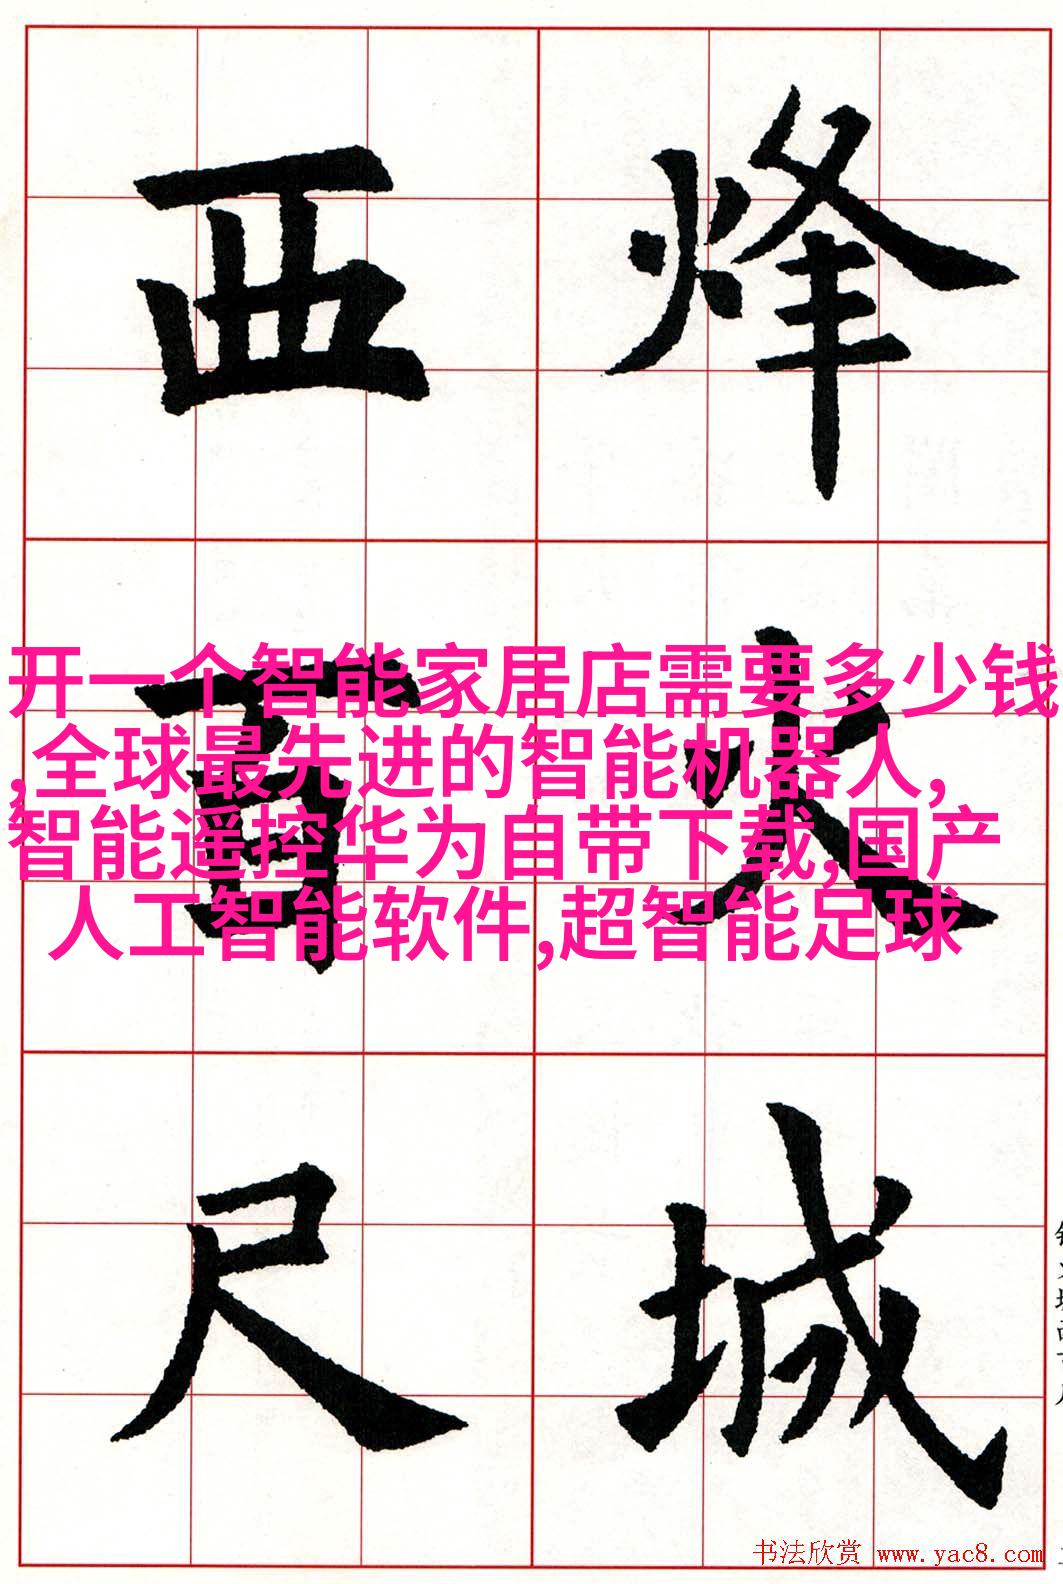 烽火城
西百尺
开一个智能家居店需要多少钱
,全球最先进的智能机器人,
智能遥控华为自带下载,国产
人工智能软件,超智能足球
书法欣赏 www.yac8.com